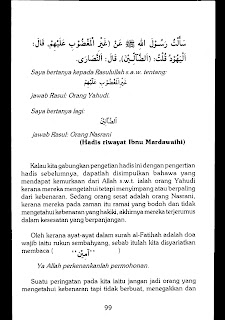 سَأَلْتُ رَسُوْلَ اللهِ ﷺ عَنْ (غَيْرِ الْمَغْضُوْبِ عَلَيْهِمْ، قَالَ:
اَلْيَهُوْدُ قُلْتُ: (الضَّآلِّيْنَ)، قَالَ: النَّصَارَى.
Saya bertanya kepada Rasulullah s.a.w. tentang:
غَيْرِالْمَغْضُوْبِ عَلَيْهِمْ
jawab Rasul: Orang Yahudi.
Saya bertanya lagi:
الضَّآلِّيْنَ
jawab Rasul: Orang Nasrani
(Hadis riwayat Ibnu Mardawaihi)
Kalau kita gabungkan pengetian hadis ini dengan pengertian
hadis sebelumnya, dapatlah disimpulkan bahawa yang
mendapat kemurkaan dari Allah s.w.t. ialah orang Yahudi
kerana mereka mengetahui tetapi menyimpang atau berpaling
dari kebenaran. Sedang orang sesat adalah orang Nasrani,
kerana mereka pada zaman itu ramai yang bodoh dan tidak
mengetahui kebenaran yang hakiki, akhirnya mereka terjerumus
dalam kesesatan yang berpanjangan.
Oleh kerana ayat-ayat dalam surah al-Fatihah adalah doa
wajib iaitu rukun sembahyang, sebab itulah kita disyariatkan
membaca ( "آمِيْنَ" )
Ya Allah perkenankanlah permohonan.
Suatu peringatan pada kita iaitu jangan jadi orang yang
mengetahui kebenaran tapi tidak berbuat, menegakkan dan
99